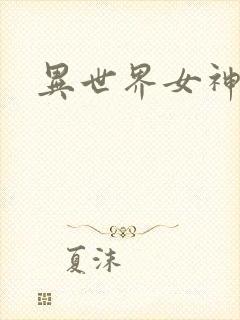 異世界女神
夏沫